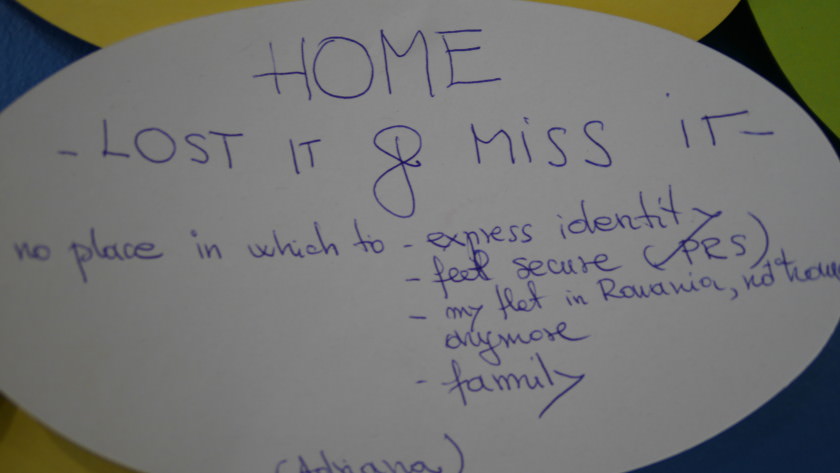 HOME
- LOST IT & MISS IT -
no place in which to - express identity
- feel secure (PRS)
- my flat in Romania, not home
anymore
- family
(Adriana)